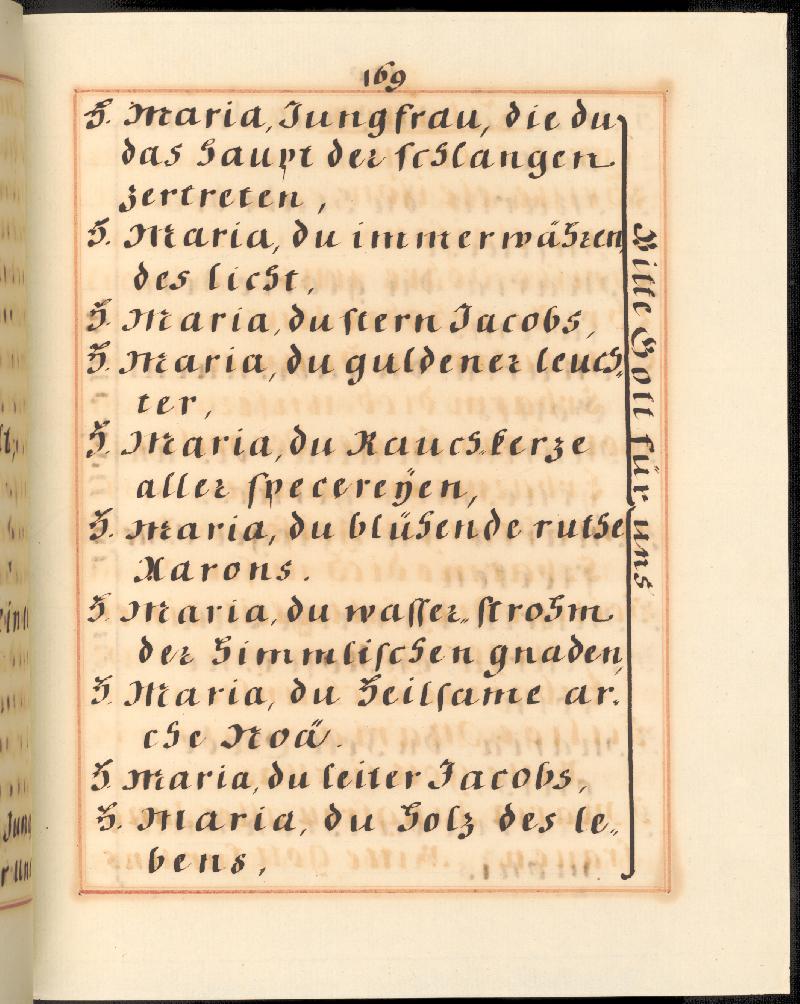 169
H. Maria, Jungfrau, die du
das haupt der schlangen
zertreten,
H. Maria, du immerwähren
des licht,
H. Maria, du stern Jacobs,
H. Maria, du guldener leuch„
ter,
H. Maria, du Rauchkerze
aller specereÿen,
H. Maria, du blühende ruthe
Aarons.
H. Maria, du wasser„strohm
der himmlischen gnaden,
H. Maria, du heilsame ar„
che Noä.
H. Maria, du leiter Jacobs,
H. Maria, du holz des le„
bens,
Bitte Gott für uns